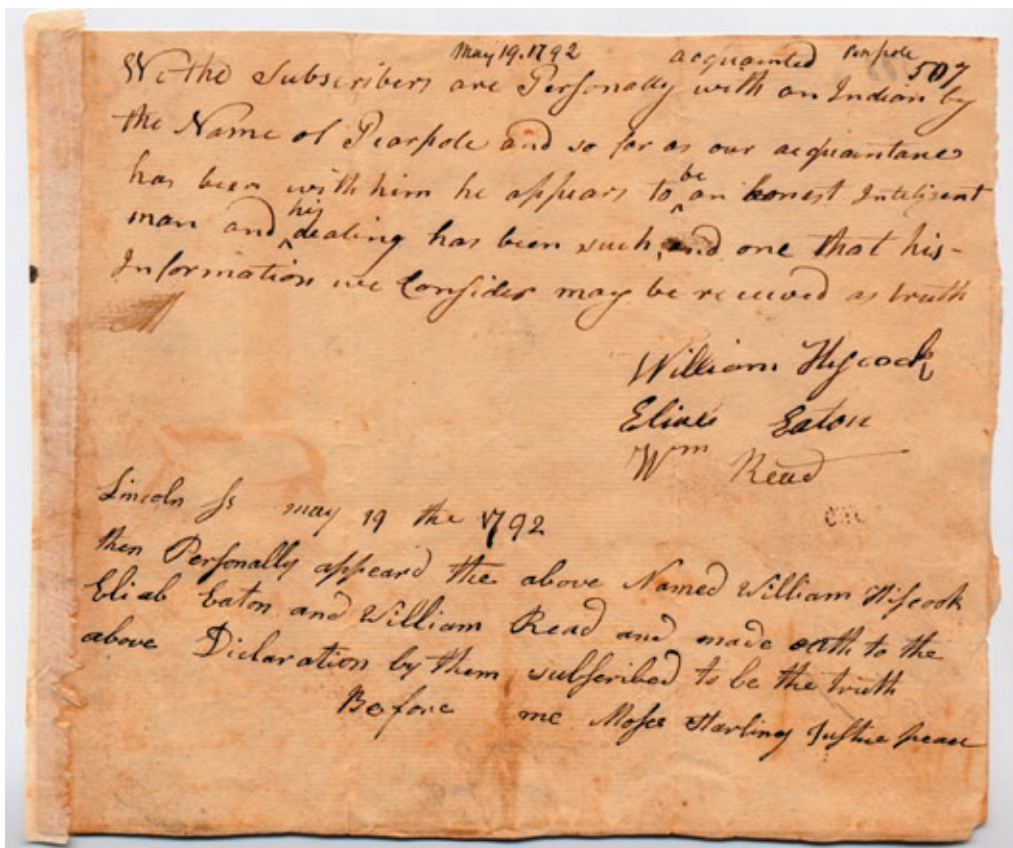 May 19. 1792 acquainted Pierpole 507
We the Subscribers are Personally with an Indian by
the Name of Pearpole and so far as our acquaintance
has been with him he appears to be an honest Inteligent
man and his dealing has been such, and one that his-
Information we Consider may be received as truth
William Hiscock
Eliab Eaton
Wm Read
Lincoln Ss may 19 the 1792
then Personally appeard the above Named William Hiscock
Eliab Eaton and William Read and made oath to the
above Diclaration by them subscribed to be the truth
Before me Moses Starling Justice peace